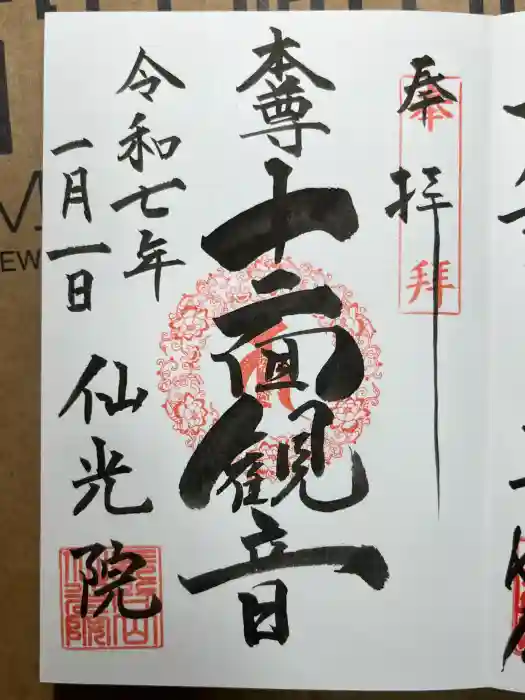 奉拝
奉拜
本尊
十一面観音
令和七年
一月一日
仙光院